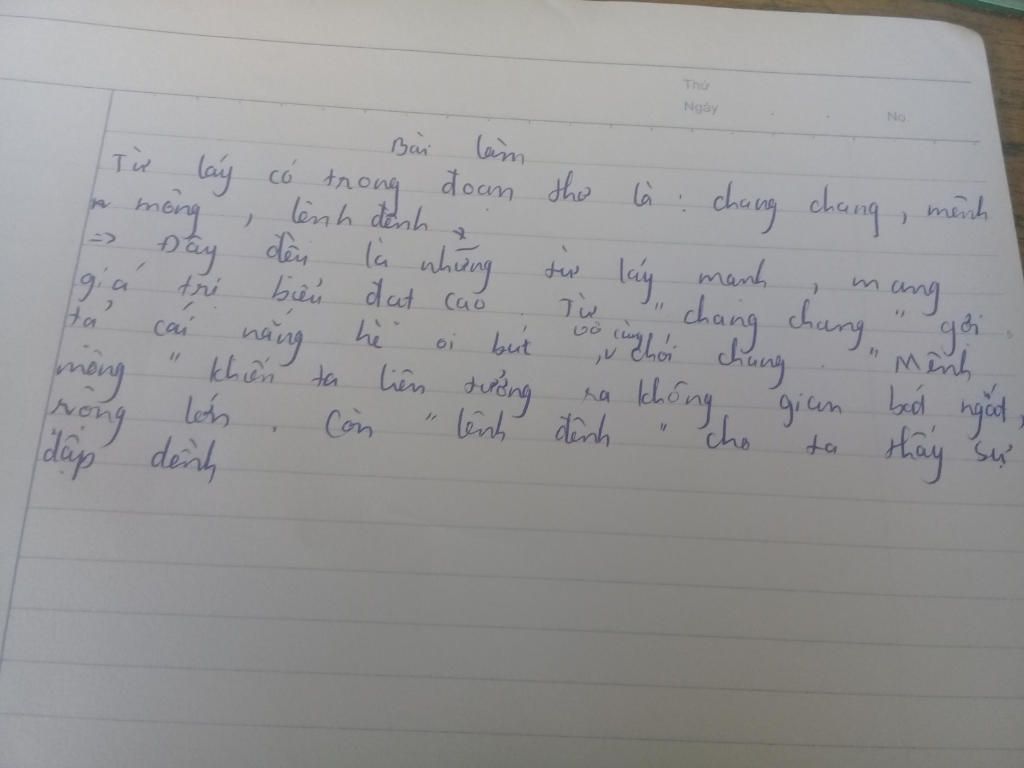 Thứ
Ngày
No
Bài làm
Từ láy có trong đoạn thơ là : chang chang, mênh
mông , lênh đênh
=> Đây đều là những từ láy mạnh , mang
giá trị biểu đạt cao . Từ " chang chang " gợi
tả cái nắng hè oi bút , vô cùng chói chang . " Mênh
mông " khiến ta liên tưởng ra không gian bát ngát,
rộng lớn . Còn " lênh đênh " cho ta thấy sự
dập dềnh